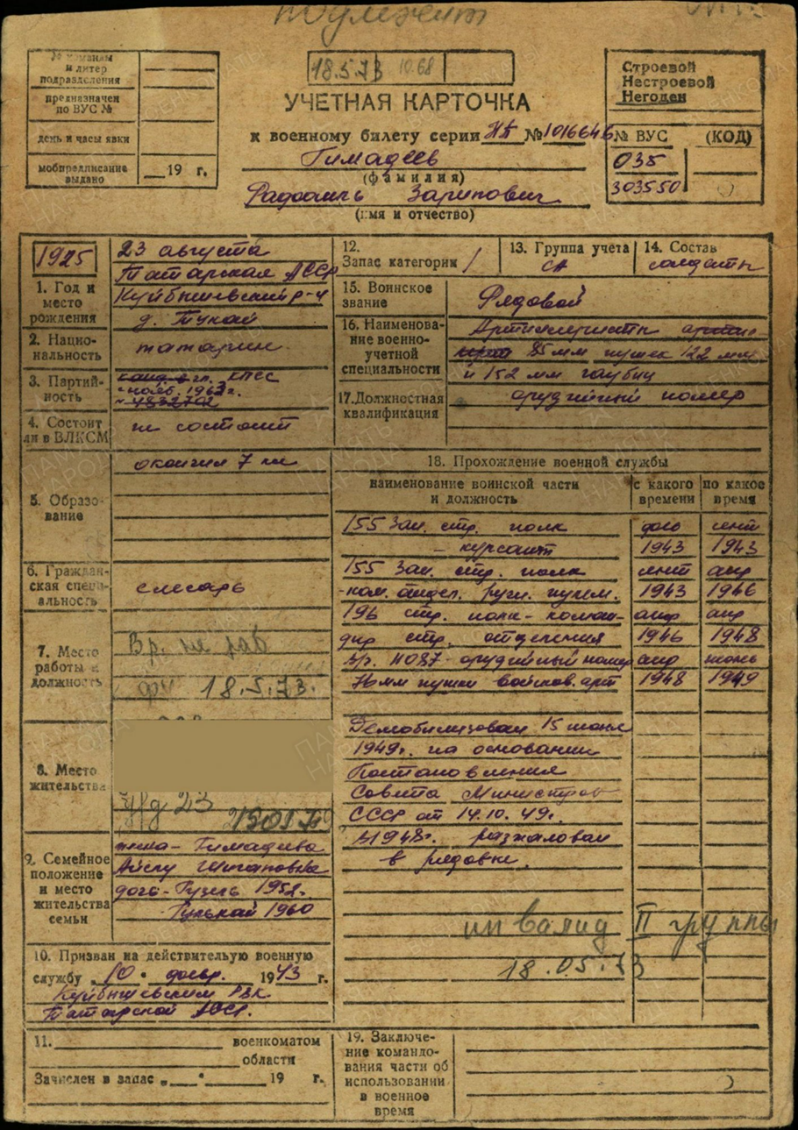 документ
№ команды
и литер
подразделения
предназначен
по ВУС №
день и часы явки
мобпредписание
выдано
19 г.
18.5.73 10.68
УЧЕТНАЯ КАРТОЧКА
к военному билету серии НБ №1016646
Гимадеев
(фамилия)
Зарипович
(имя и отчество)
Строевой
Нестроевой
Негоден
№ ВУС (КОД)
035
303550
1925
1. Год и
место
рождения
23 августа
Татарская АССР
Куйбышевский р-н
д. Тукай
2. Нацио-
нальность
татарин
3. Партий-
ность
канд. в чл. КПСС
4. Состоит
ли в ВЛКСМ
не состоит
5. Образо-
вание
окончил 7 кл
6. Граждан-
ская специ-
альность
слесарь
7. Место
работы и
должность
Вр. не раб
18.5.73.
8. Место
жительства
23
9. Семейное
положение
и место
жительства
семьи
жена - Гимадеева
Айслу
1952
1960
10. Призван на действительную военную
службу 10 1943 г.
Куйбышевским РВК
Татарской АССР.
11. военкоматом
области
Зачислен в запас „ “ 19 г.
12.
Запас категории 1
13. Группа учета
СА
14. Состав
солдаты
15. Воинское
звание
Рядовой
16. Наименова-
ние военно-
учетной
специальности
Артиллеристы
85мм пушек 122 мм
и 152 мм гаубиц
17.Должностная
квалификация
орудийный номер
18. Прохождение военной службы
наименование воинской части
и должность
с какого
времени
по какое
время
155 Зап. стр. полк
- курсант
1943 сент
1943
155 Зап. стр. полк
ком. отдел. ручн. пулем.
сент 1943
апр 1946
196 стр. полк - коман-
дир стр. отделения
апр 1946
апр 1948
орудийный номер
пушки войсков. арт
апр 1948
июнь 1949
Демобилизован 15 июня
1949г. на основании
Постановления
Совета Министров
СССР от 14.10.49г.
в 1948г. разжалован
в рядовые.
инвалид II группы
18.05.73
19. Заключе-
ние командо-
вания части об
использовании
в военное
время